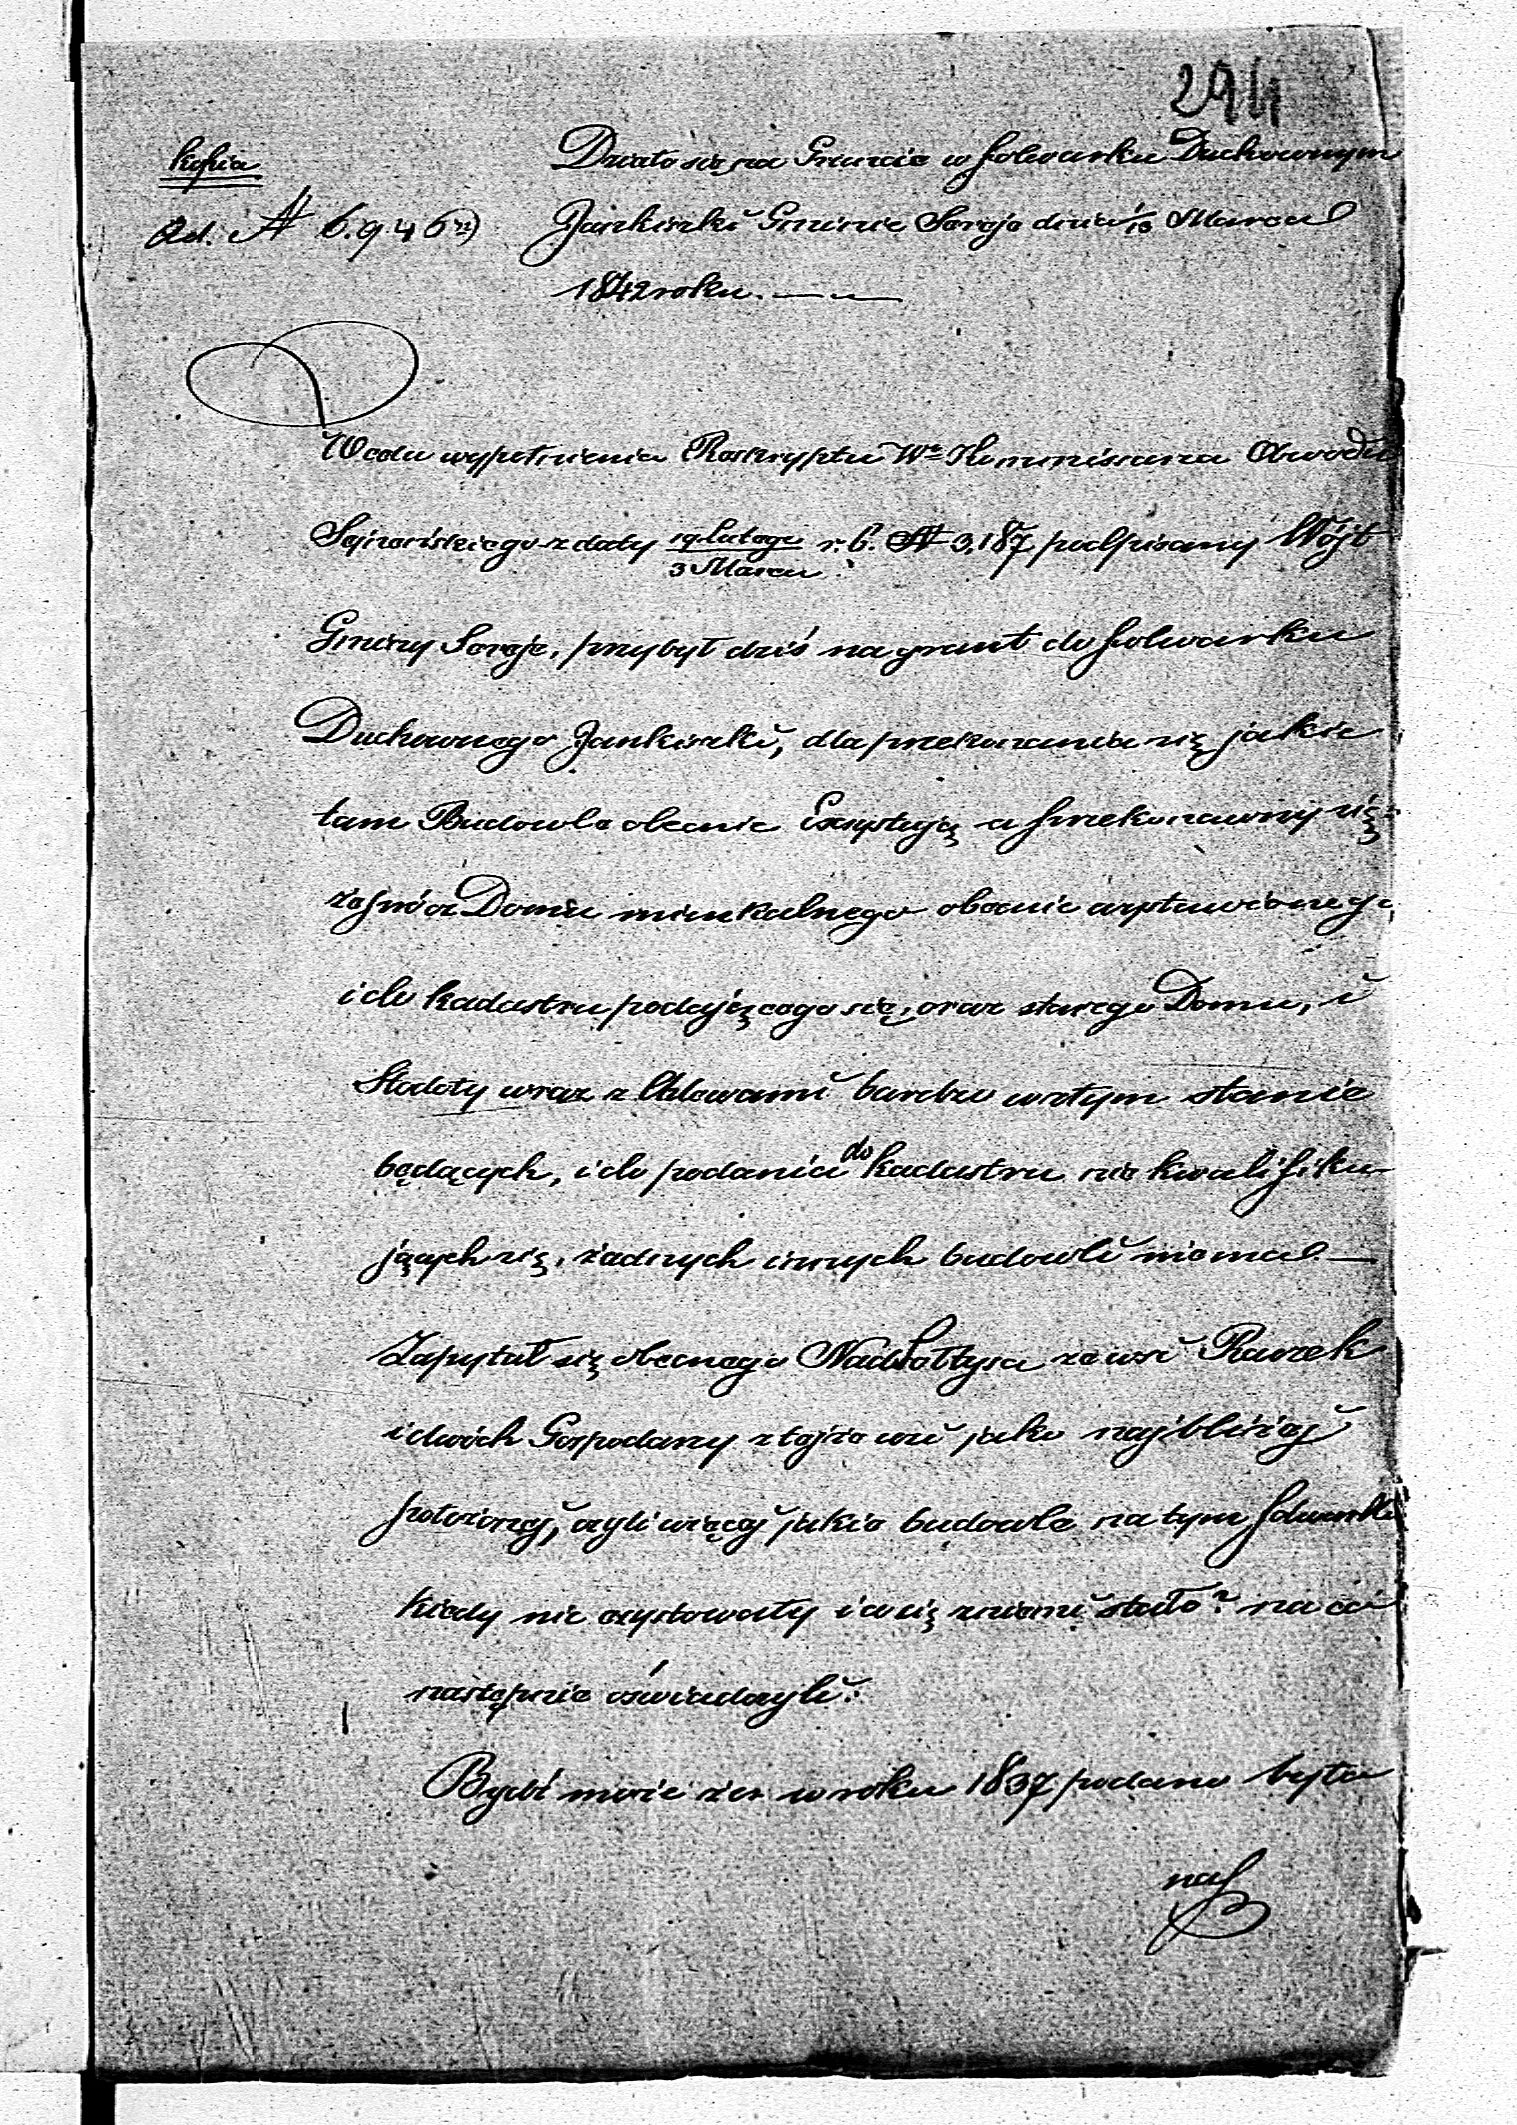 294
Kopia
Działo się na Gruncie w folwarku Duchownym
Ad. № 6.946
Jankiszki Gminie Sereje dnia 1/13 Marca
1842 roku.
W celu wypełnienia Reskryptu Wo Kommissarza Obwodu
Sejneńskiego z daty 19 Lutego / 3 Marca r. b. № 3,187 podpisany Wójt
Gminy Sereje, przybył dziś na grunt do folwarku
Duchownego Jankiszki, dla przekonania się jakie
tam Budowle obecnie Exsystują a przekonawszy się
że prócz Domu mieszkalnego obecnie wystawionego
i do kadastru podającego się, oraz starego Domu, i
Stodoły wraz z Chlewami bardzo w złym stanie
będących, i do podania do kadastru nie kwalifiku-
jących się, żadnych innych budowli niema
Zapytał się obecnego Nadsołtysa ze wsi Raczek
i dwóch Gospodarzy z tejże wsi jako najbliżej
położonej, czyli więcej jakie budowle na tym folwarku
kiedy nie exystowały i co się z niemi stało? na co ci
następnie oświadczyli:
Bydź może że w roku 1837 podano było
na